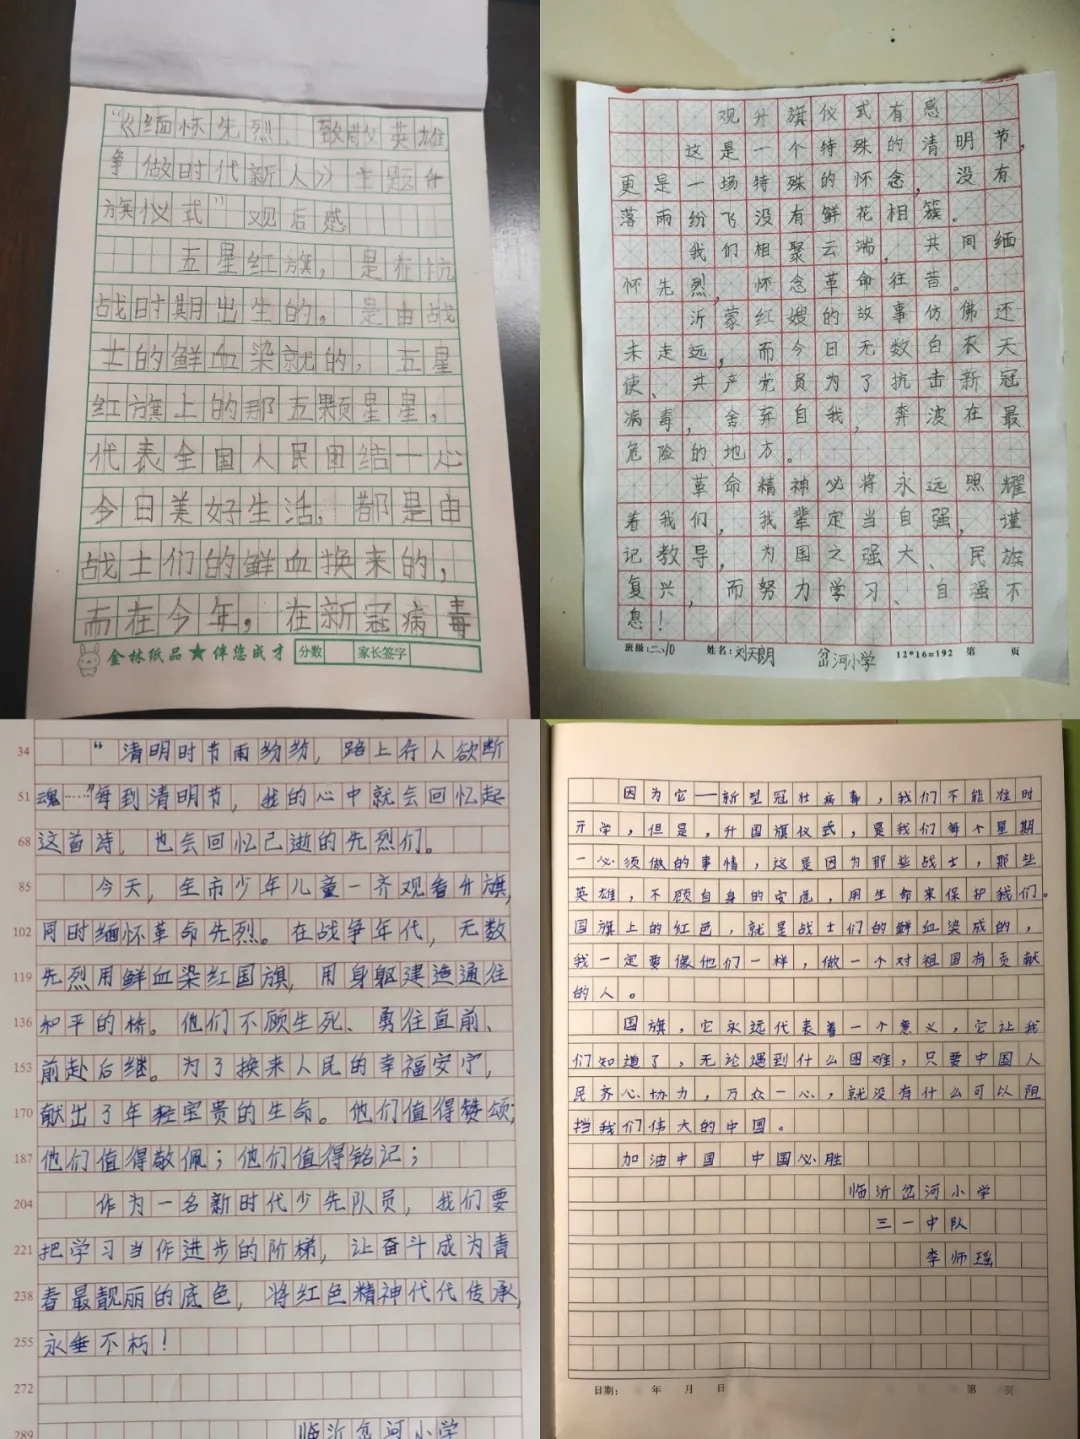 “《缅怀先烈，致敬英雄
争做时代新人》主题升
旗仪式”观后感
五星红旗，是在抗
战时期出生的。是由战
士的鲜血染就的，五星
红旗上的那五颗星星，
代表全国人民团结一心
今日美好生活，都是由
战士们的鲜血换来的，
而在今年，在新冠病毒
金林纸品★伴您成才 分数 家长签字
观升旗仪式有感
这是一个特殊的清明节，
更是一场特殊的怀念，没有
落雨纷飞没有鲜花相簇。
我们相聚云端，共同缅
怀先烈，怀念革命往昔。
沂蒙红嫂的故事仿佛还
未走远，而今日无数白衣天
使、共产党员为了抗击新冠
病毒，舍弃自我，奔波在最
危险的地方。
革命精神必将永远照耀
着我们，我辈定当自强，谨
记教导，为国之强大、民族
复兴，而努力学习、自强不
息！
班级:二、10 姓名:刘天朗 岔河小学 12*16=192 第 页
34 “清明时节雨纷纷，路上行人欲断
51 魂……”每到清明节，我的心中就会回忆起
68 这首诗，也会回忆已逝的先烈们。
85 今天，全市少年儿童一齐观看升旗，
102 同时缅怀革命先烈。在战争年代，无数
119 先烈用鲜血染红国旗，用身躯建造通往
136 和平的桥。他们不顾生死、勇往直前、
153 前赴后继。为了换来人民的幸福安宁，
170 献出了年轻宝贵的生命。他们值得赞颂；
187 他们值得敬佩；他们值得铭记；
204 作为一名新时代少先队员，我们要
221 把学习当作进步的阶梯，让奋斗成为青
238 春最靓丽的底色，将红色精神代代传承，
255 永垂不朽！
272
289 临沂岔河小学
因为它—新型冠壮病毒，我们不能准时
开学，但是，升国旗仪式，是我们每个星期
一必须做的事情，这是因为那些战士，那些
英雄，不顾自身的安危，用生命来保护我们。
国旗上的红色，就是战士们的鲜血染成的，
我一定要像他们一样，做一个对祖国有贡献
的人。
国旗，它永远代表着一个意义，它让我
们知道了，无论遇到什么困难，只要中国人
民齐心协力，万众一心，就没有什么可以阻
挡我们伟大的中国。
加油中国 中国必胜
临沂岔河小学
三一中队
李师瑶
日期: 年 月 日 第 页